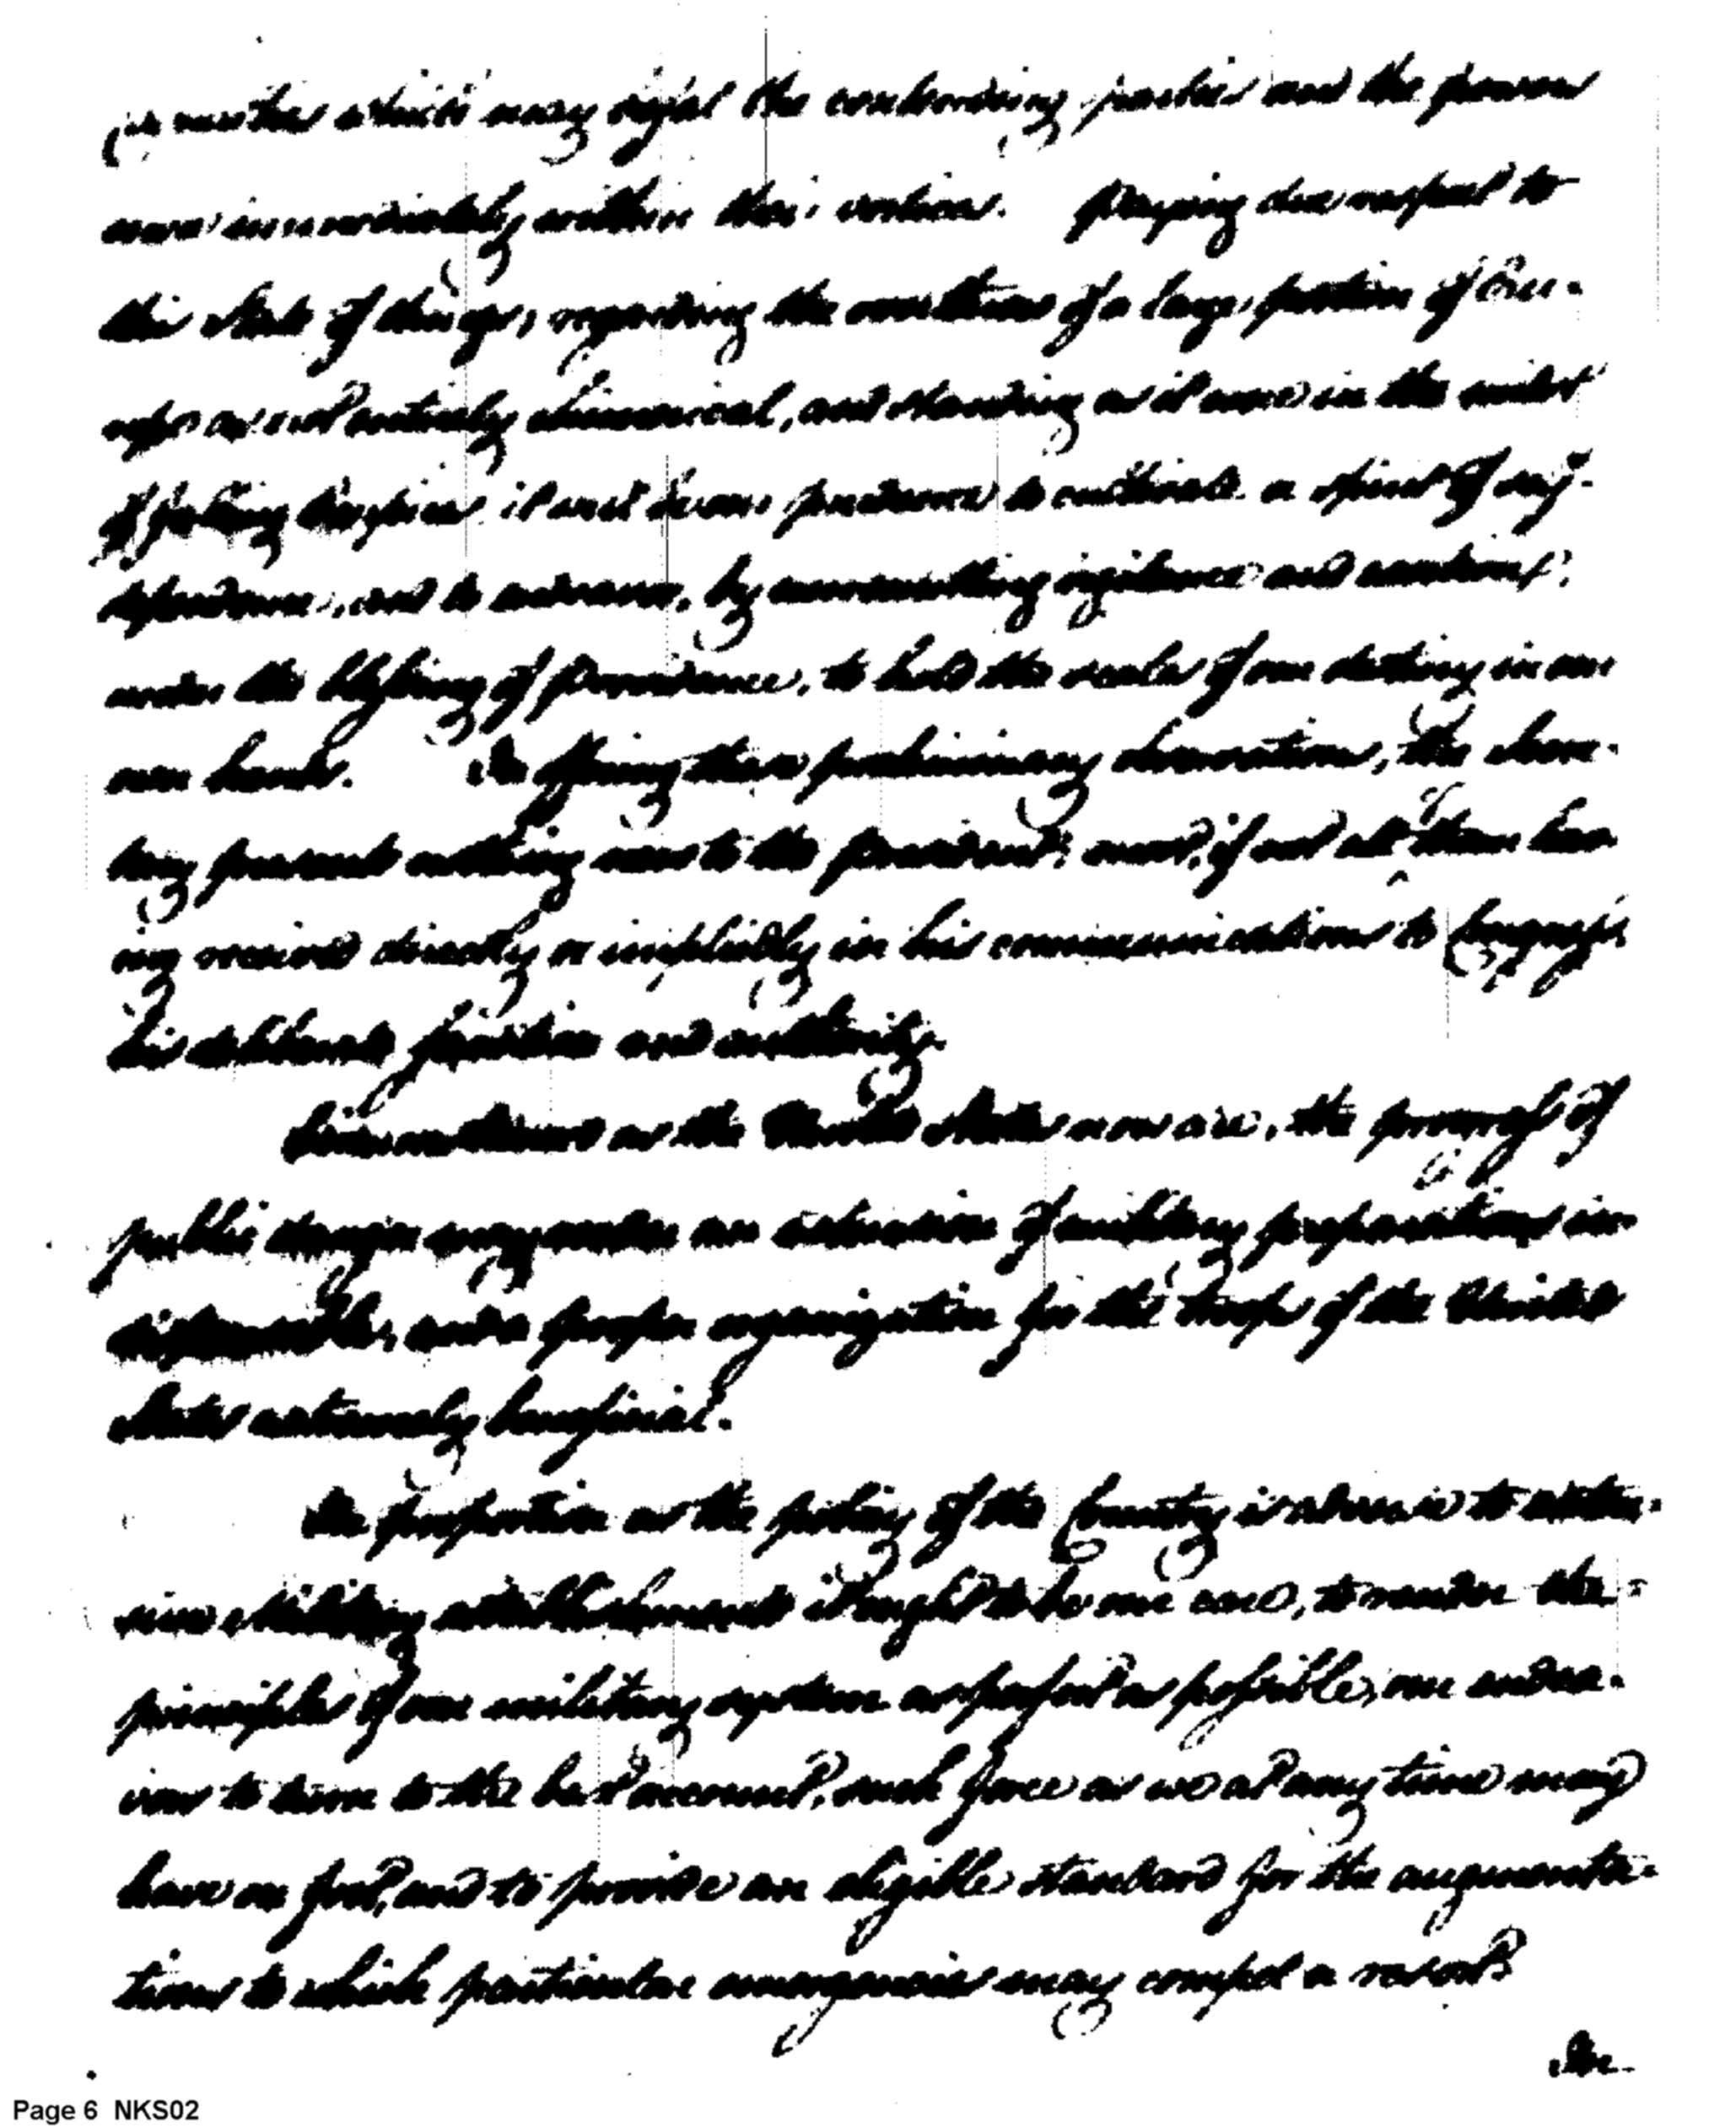 which may the contending parties and the powers
more immediately within their vortex. Paying due respect to
this state of things, regarding the overthrow of a large portion of Eu-
rope as not entirely chimerical, and standing as it were in the midst
of falling Empires, it will be our prudence to cultivate a spirit of self-
dependence, and to endeavour, by unremitting vigilance and exertions,
under the blessing of Providence, to hold the scales of our destiny in our
own hand. In offering these preliminary observations, the Secre-
tary presents nothing new to the President; most, if not all of them hav-
ing received directly or implicitly in his communications to Congress
his sanction and authority.
Circumstanced as the United States now are, the progress of
public danger may render an extension of military preparations in-
dispensable, and a proper organization for the troops of the United
States extremely beneficial.
In proportion as the policy of the Country is adverse to exten-
sive Military establishments it ought to be our care, to render the
principles of our military system as perfect as possible, our endea-
vour to turn to the best account, such force as we at any time may
have on foot, and to provide an eligible standard for the augmenta-
tions to which particular emergencies may compel a resort
In
Page 6 NKS02